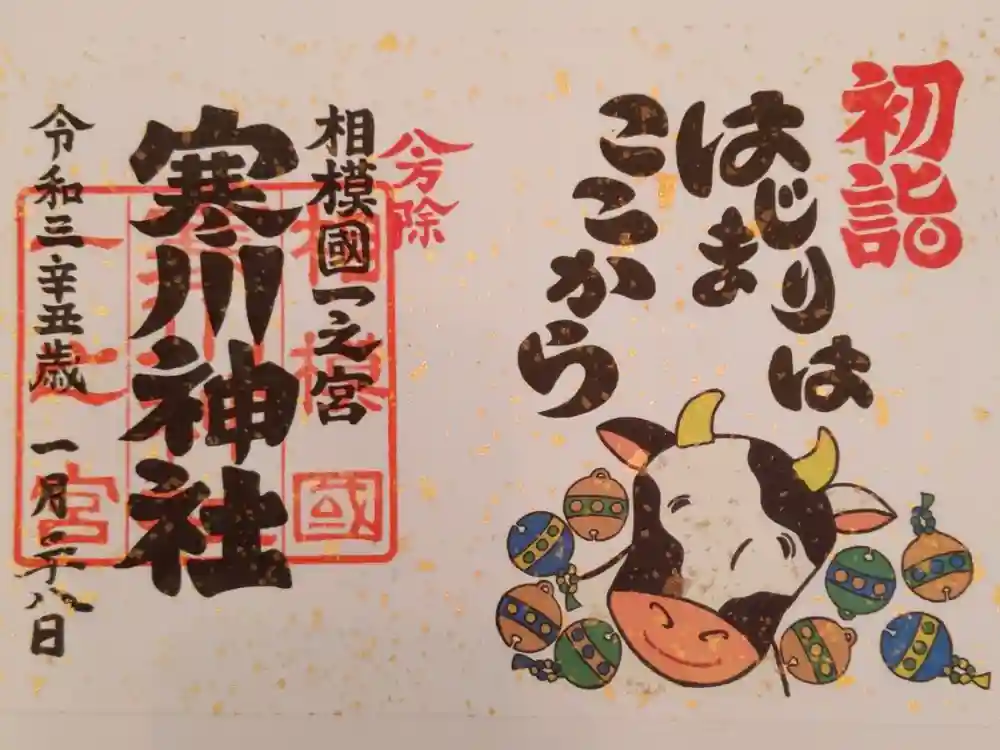 初詣
はじりは
はじまりは
ここから
八方除
相模國一之宮
寒川神社
相模國
一之宮
令和三辛丑歳 一月二十八日